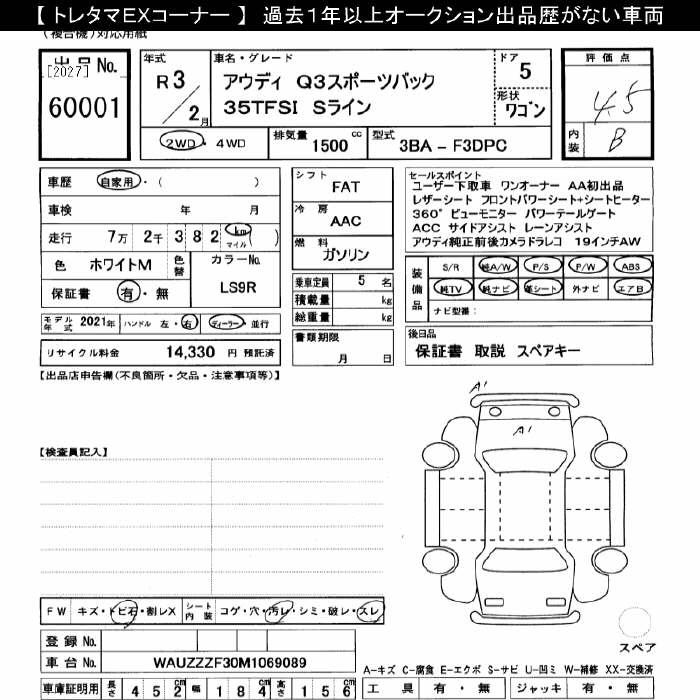 【 トレタマEXコーナー 】 過去1年以上オークション出品歴がない車両
(複合機)対応用紙
出品 No.
[2027]
60001
年式
R 3
2月
車名・グレード
アウディ Q3スポーツバック
35TFSI Sライン
ドア
5
形状
ワゴン
2WD・4WD
排気量
1500 cc
型式
3BA - F3DPC
評価点
4.5
内装
B
車歴 自家用・( )
車検 年 月
走行 7万 2千 3 8 2 km マイル ( )
色 ホワイトM
色替
カラーNo.
LS9R
保証書 有・無
シフト
FAT
冷房
AAC
燃料
ガソリン
乗車定員 5 名
積載量 kg
総重量 kg
書類期限
月 日
セールスポイント
ユーザー下取車 ワンオーナー AA初出品
レザーシート フロントパワーシート+シートヒーター
360°ビューモニター パワーテールゲート
ACC サイドアシスト レーンアシスト
アウディ純正前後カメラドラレコ 19インチAW
装備品
S/R 純A/W P/S P/W ABS
純TV 純ナビ 革シート 外ナビ エアB
ナビ型番:
モデル年式 2021年 ハンドル 左・右 ディーラー・並行
リサイクル料金 14,330 円 預託済
後日品
保証書 取説 スペアキー
【出品店申告欄(不良箇所・欠品・注意事項等)】
A1
A1
【検査員記入】
FW キズ・トビ石・割レX
シート内装 コゲ・穴・汚レ・シミ・破レ・スレ
登録 No.
車台 No. WAUZZZF30M1069089
スペア
A-キズ C-腐食 E-エクボ S-サビ U-凹ミ W-補修 XX-交換済
車庫証明用 長さ 4 5 2 cm 幅 1 8 4 cm 高さ 1 5 6 cm
工具 有・無 ジャッキ 有・無